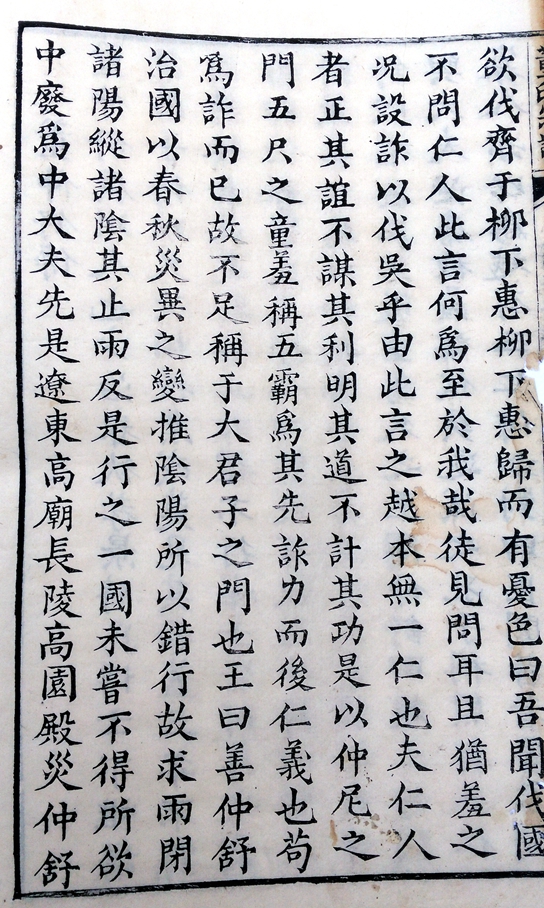 欲伐齊于柳下惠柳下惠歸而有憂色曰吾聞伐國
不問仁人此言何爲至於我哉徒見問耳且猶羞之
况設詐以伐吳乎由此言之越本無一仁也夫仁人
者正其誼不謀其利明其道不計其功是以仲尼之
門五尺之童羞稱五霸爲其先詐力而後仁義也茍
爲詐而已故不足稱于大君子之門也王曰善仲舒
治國以春秋災異之變推陰陽所以錯行故求雨閉
諸陽縱諸陰其止雨反是行之一國未嘗不得所欲
中廢爲中大夫先是遼東高廟長陵高園殿災仲舒